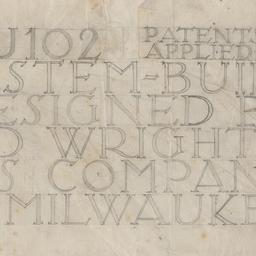 U102 PATENTS
APPLIED
STEM-BUIL
ESIGNED B
D WRIGHT
S COMPAN
MILWAUKE